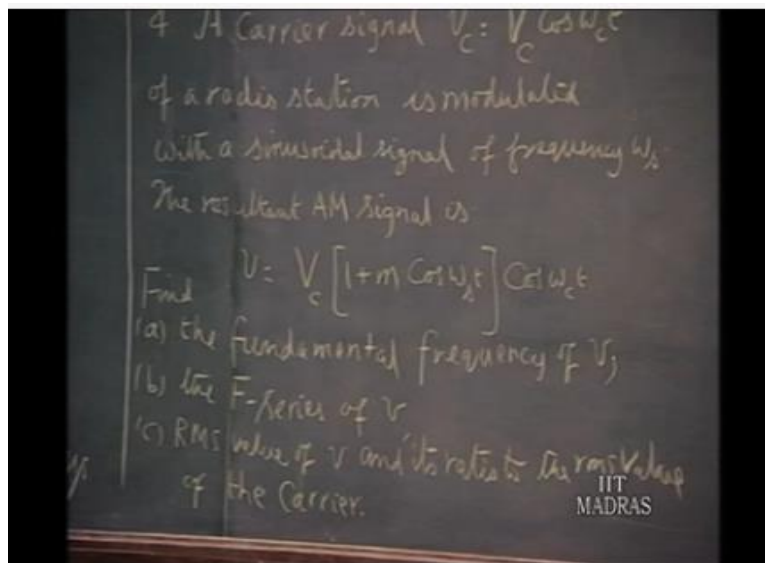 4 A Carrier signal v_c = V_c Cos ω_c t
of a radio station is modulated
with a sinusoidal signal of frequency ω_s.
The resultant AM signal is
v = V_c [1 + m Cos ω_s t] Cos ω_c t
Find
(a) the fundamental frequency of v;
(b) the F-series of v
(c) RMS value of v and its ratio to the rms value
of the Carrier.
IIT
MADRAS